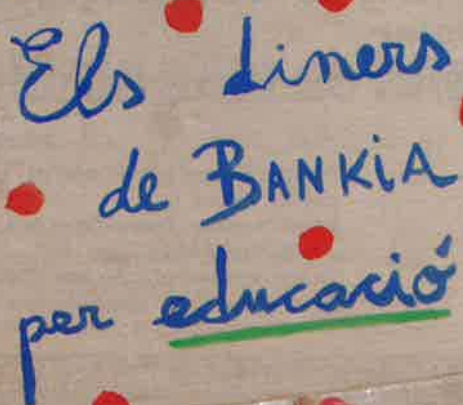 Els diners
de BANKiA
per educació